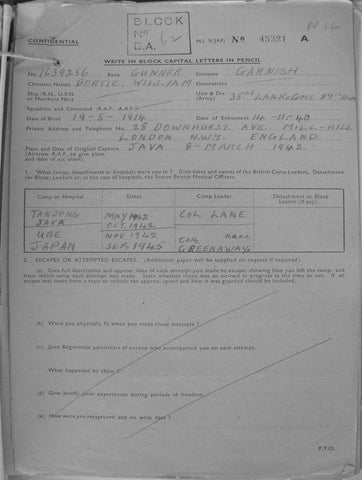 BLOCK
No 62
B.A.
NIL
CONFIDENTIAL
M.I. 9/JAP/ No 45321 A
WRITE IN BLOCK CAPITAL LETTERS IN PENCIL
No. 1639256 Rank GUNNER Surname GARNISH
Christian Names BERTIE. WILLIAM Decorations
Ship (R.N., U.S.N. or Merchant Navy) Unit & Div. (Army) 35TH L.A.A. REGMT 89TH
Squadron and Command (R.A.F. A.A.F.)
Date of Birth 14-5-1914 Date of Enlistment 14-11-40
Private Address and Telephone No. 28 DOWNHURST AVE. MILL-HILL
LONDON N.W.7. ENGLAND.
Place and Date of Original Capture JAVA 8-MARCH 1942.
(Aircrew R.A.F. to give place and date of a/c crash).
1. What camps, detachments or hospitals were you in? Give dates and names of the British Camp Leaders, Detachment (or Block) Leaders or, in the case of hospitals, the Senior British Medical Officers.
Camp or Hospital. Dates. Camp Leader. Detachment or Block Leader (if any).
TANJONG MAY 1942 COL. LANE
JAVA OCT. 1942
UBE NOV 1942 CAP. R.A.O.C.
JAPAN SEP. 1945 GREENAWAY
2. ESCAPES OR ATTEMPTED ESCAPES. (Additional paper will be supplied on request if required).
(a) Give full description and approx. date of each attempt you made to escape, showing how you left the camp, and from which camp each attempt was made. State whether there was an air-raid in progress at the time or not. If an escape was made from a train or vehicle the approx. speed and how it was guarded should be included.
(b) Were you physically fit when you made these attempts?
(c) Give Regimental particulars of anyone who accompanied you on each attempt.
What happened to them?
(d) Give briefly your experiences during periods of freedom.
(e) How were you recaptured and on what date?
P.T.O.